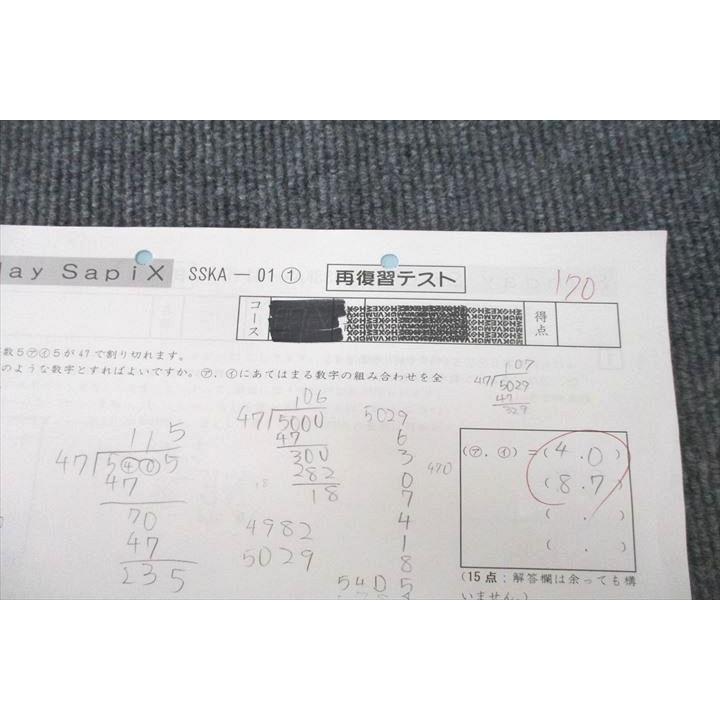 day SapiX SSKA－01① 再復習テスト 170
コース 得点
数5㋐㋑5が47で割り切れます。
のような数字とすればよいですか。㋐，㋑にあてはまる数字の組み合わせを全
107
47)5029
47
329
106
47)5000
47
300
282
18
4982
5029
115
47)5④⓪5
47
70
47
235
5029
6
3
0
7
4
1
8
5405
470
(㋐，㋑)＝(4．0)
(8．7)
(　．　)
(　．　)
(15点：解答欄は余っても構
いません。)